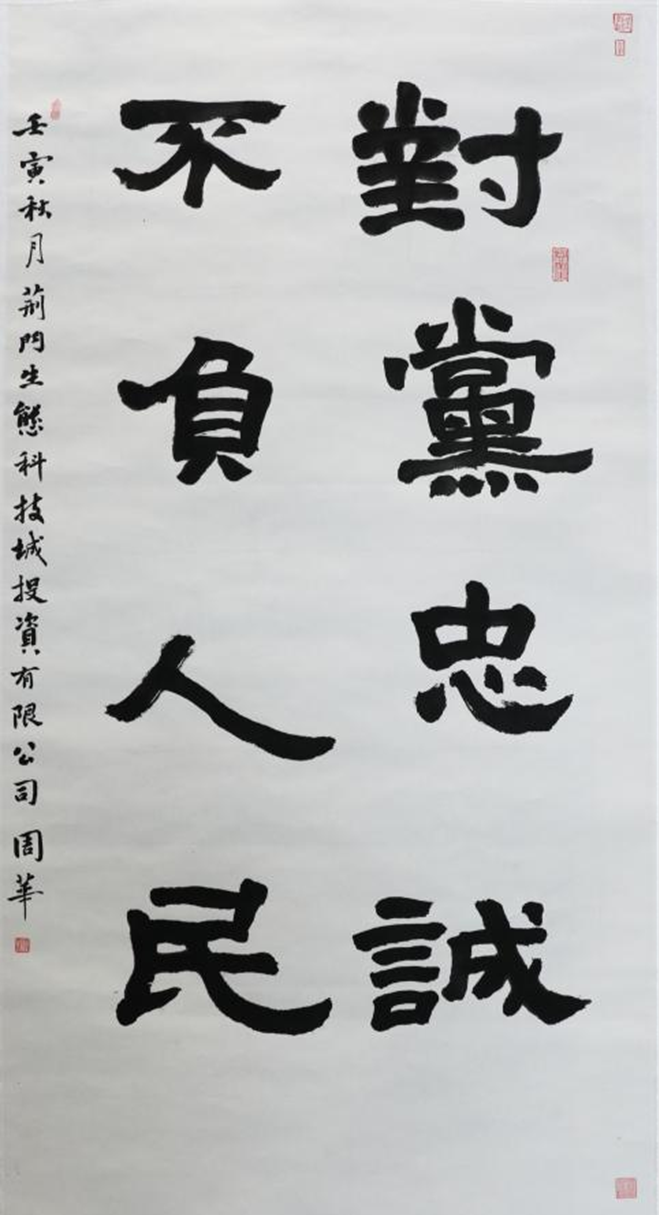 對黨忠誠
不負人民
壬寅秋月荊門生態科技城投資有限公司周華